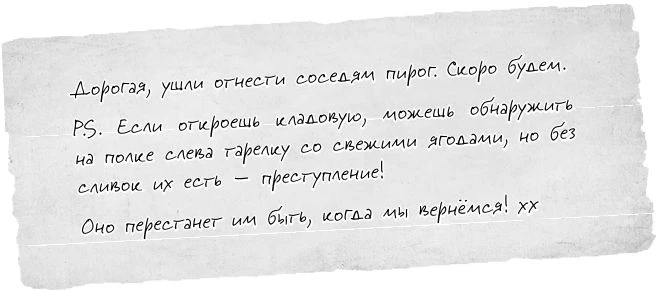 Дорогая, ушли отнести соседям пирог. Скоро будем.
P.S. Если откроешь кладовую, можешь обнаружить
на полке слева тарелку со свежими ягодами, но без
сливок их есть — преступление!
Оно перестанет им быть, когда мы вернёмся! xx